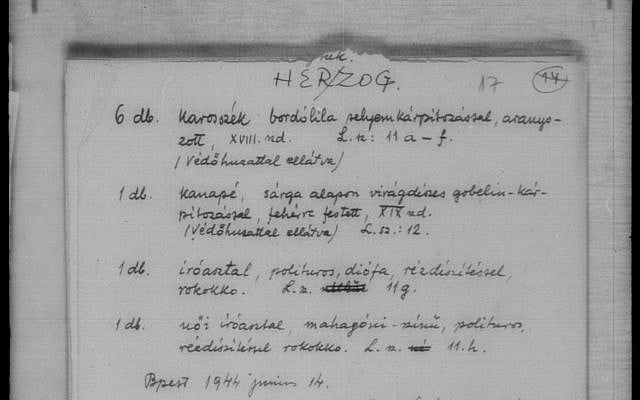 nek.
HERZOG.
17 44
6 db. Karosszék bordólila selyemkárpitozással, aranyo-
zott, XVIII. szd. L. sz: 11 a – f.
(Védőhuzattal ellátva)
1 db. Kanapé, sárga alapon virágdíszes gobelin-kár-
pitozással, fehérre festett, XIX szd.
(Védőhuzattal ellátva) L. sz.: 12.
1 db. íróasztal, politúros, diófa, rézdíszítéssel,
rokokko. L. sz. 11 g.
1 db. női íróasztal, mahagóni-színű, politúros,
rézdíszítéssel rokokko. L. sz. 11. h.
Bpest 1944 június 14.